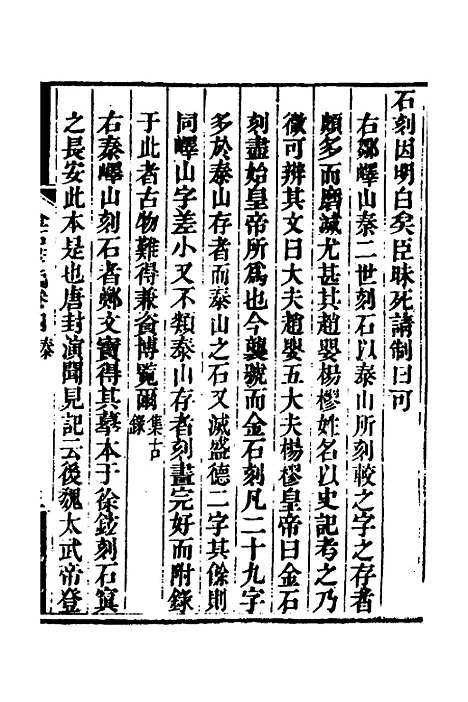 石刻因明白矣臣昧死請制曰可
右鄒嶧山秦二世刻石以泰山所刻較之字之存者
頗多而磨滅尤甚其趙嬰楊樛姓名以史記考之乃
微可辨其文曰大夫趙嬰五大夫楊樛皇帝曰金石
刻盡始皇帝所爲也今襲號而金石刻凡二十九字
多於泰山存者而泰山之石又滅盛德二字其餘則
同嶧山字差小又不類泰山存者刻畫完好而附錄
于此者古物難得兼資博覽爾集古錄
右秦嶧山刻石者鄭文寶得其摹本于徐鉉刻石寘
之長安此本是也唐封演聞見記云後魏太武帝登